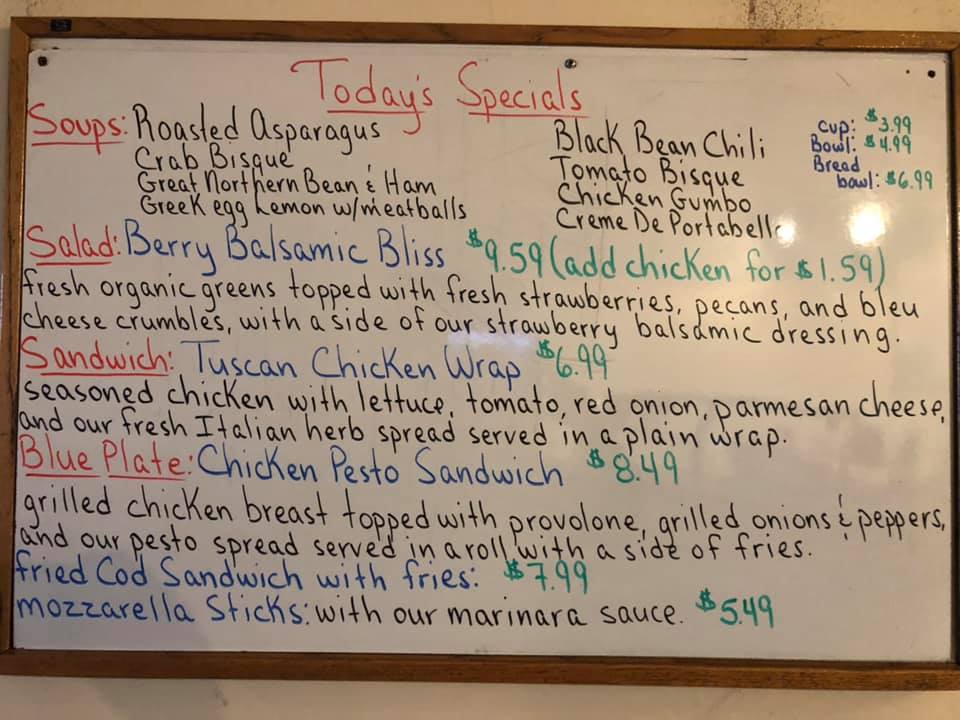 Today's Specials
Soups: Roasted Asparagus
Crab Bisque
Great Northern Bean & Ham
Greek egg Lemon w/meatballs
Black Bean Chili
Tomato Bisque
Chicken Gumbo
Creme De Portabella
cup: $3.99
Bowl: $4.99
Bread
bowl: $6.99
Salad: Berry Balsamic Bliss $9.59 (add chicken for $1.59)
fresh organic greens topped with fresh strawberries, pecans, and bleu
cheese crumbles, with a side of our strawberry balsamic dressing.
Sandwich: Tuscan Chicken Wrap $6.99
seasoned chicken with lettuce, tomato, red onion, parmesan cheese,
and our fresh Italian herb spread served in a plain wrap.
Blue Plate: Chicken Pesto Sandwich $8.49
grilled chicken breast topped with provolone, grilled onions & peppers,
and our pesto spread served in a roll with a side of fries.
fried Cod Sandwich with fries: $7.99
mozzarella Sticks: with our marinara sauce. $5.49